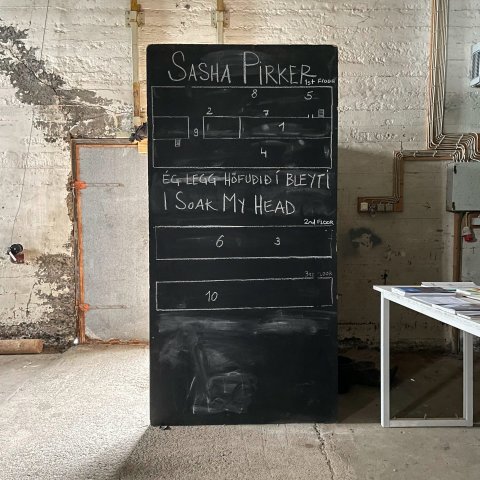 SASHA PIRKER
1st FLOOR
8 5
2 7
9 1
4
ÉG LEGG HÖFUÐIÐ Í BLEYTI
I SOAK MY HEAD
2nd FLOOR
6 3
3rd FLOOR
10